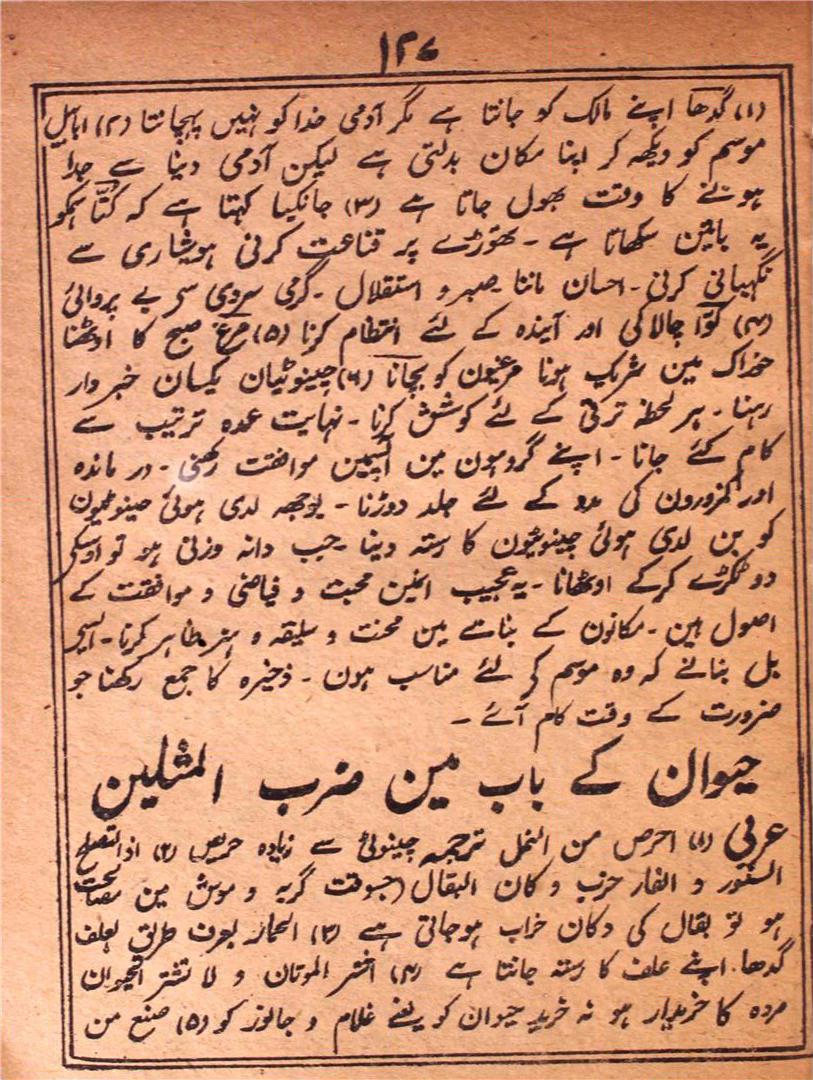 ۱۲۷
(۱) گدھا اپنے مالک کو جانتا ہے مگر آدمی خدا کو نہیں پہچانتا (۲) ابابیل
موسم کو دیکھہ کر اپنا مکان بدلتی ہے لیکن آدمی دینا سے جدا
ہونے کا وقت بھول جاتا ہے (۳) جانکیا کہتا ہے کہ کتّا ہمکو
یہ باتین سکھاتا ہے ۔ تھوڑے پر قناعت کرنی ہوشیاری سے
نگہبانی کرنی ۔ احسان ماننا صبر و استقلال ۔ گرمی سردی سے بے پروائی
(۴) کوّا چالاکی اور آیندہ کے لئے انتظام کرنا (۵) مرغ صبح کا اوٹھنا
خوراک مین شریک ہونا مرغیون کو بچانا (۶) چینوٹیان یکسان خبردار
رہنا ۔ ہر لحظہ ترقی کے لئے کوشش کرنا ۔ نہایت عمدہ ترتیب سے
کام کئے جانا ۔ اپنے گروہون مین آپسمین موافقت رکھنی ۔ در ماندہ
اور کمزورون کی مدد کے لئے جلد دوڑنا ۔ بوجھہ لدی ہوئی چینوٹیون
کو بن لدی ہوئی چینوٹیون کا رستہ دینا ۔ جب دانہ وزنی ہو تو اوسکی
دو ٹکڑے کرکے اوٹھانا ۔ یہ عجیب انمین محبت و فیاضی و موافقت کے
اصول ہین ۔ مکانون کے بنانے مین محنت و سلیقہ و ہنر ظاہر کرنا ۔ ایسے
بل بنانے کہ وہ موسم کے لئے مناسب ہون ۔ ذخیرہ کا جمع رکھنا جو
ضرورت کے وقت کام آئے ۔
حیوان کے باب مین ضرب المثلین
عربی (۱) احرص من النمل ترجمہ چینوٹی سے زیادہ حریص (۲) اذا
السنور و الفار خرب دکان البقال (جسوقت گربہ و موش مین
ہو تو بقال کی دکان خراب ہوجاتی ہے (۳) الحمار یعرف طریق العلف
گدھا اپنے علف کا رستہ جانتا ہے (۴) اشتر الموتان و لا تشتر الحیوان
مردہ کا خریدار ہو نہ خرید حیوان کو یعنے غلام و جانور کو (۵) صنع من